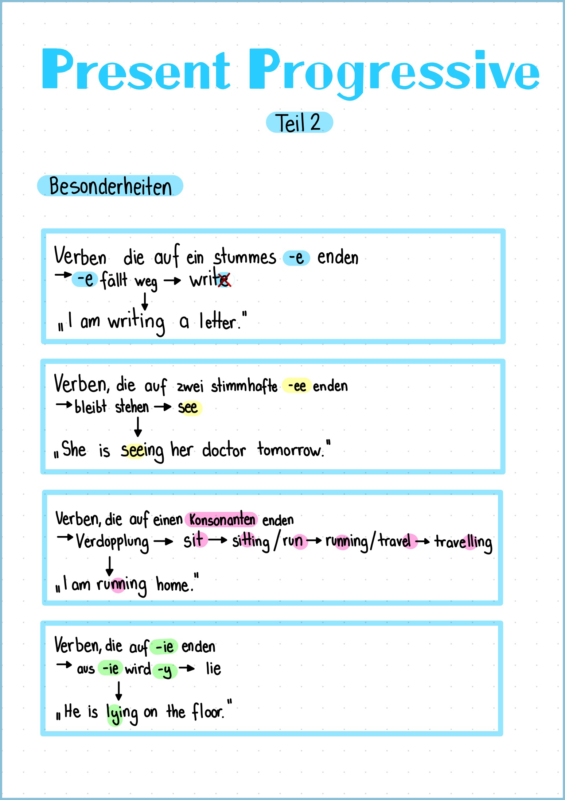 Present Progressive
Teil 2
Besonderheiten
Verben die auf ein stummes -e enden
→ -e fällt weg → write
↓
„I am writing a letter."
Verben, die auf zwei stimmhafte -ee enden
→ bleibt stehen → see
↓
„She is seeing her doctor tomorrow."
Verben, die auf einen Konsonanten enden
→ Verdopplung → sit → sitting / run → running / travel → travelling
↓
„I am running home."
Verben, die auf -ie enden
→ aus -ie wird -y → lie
↓
„He is lying on the floor."